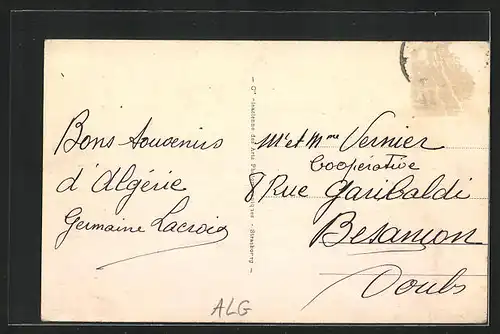 Bons Souvenirs
d'Algérie
Germaine Lacroix
Mr et Mme Vernier
Coopérative
8 Rue Garibaldi
Besançon
Doubs
ALG